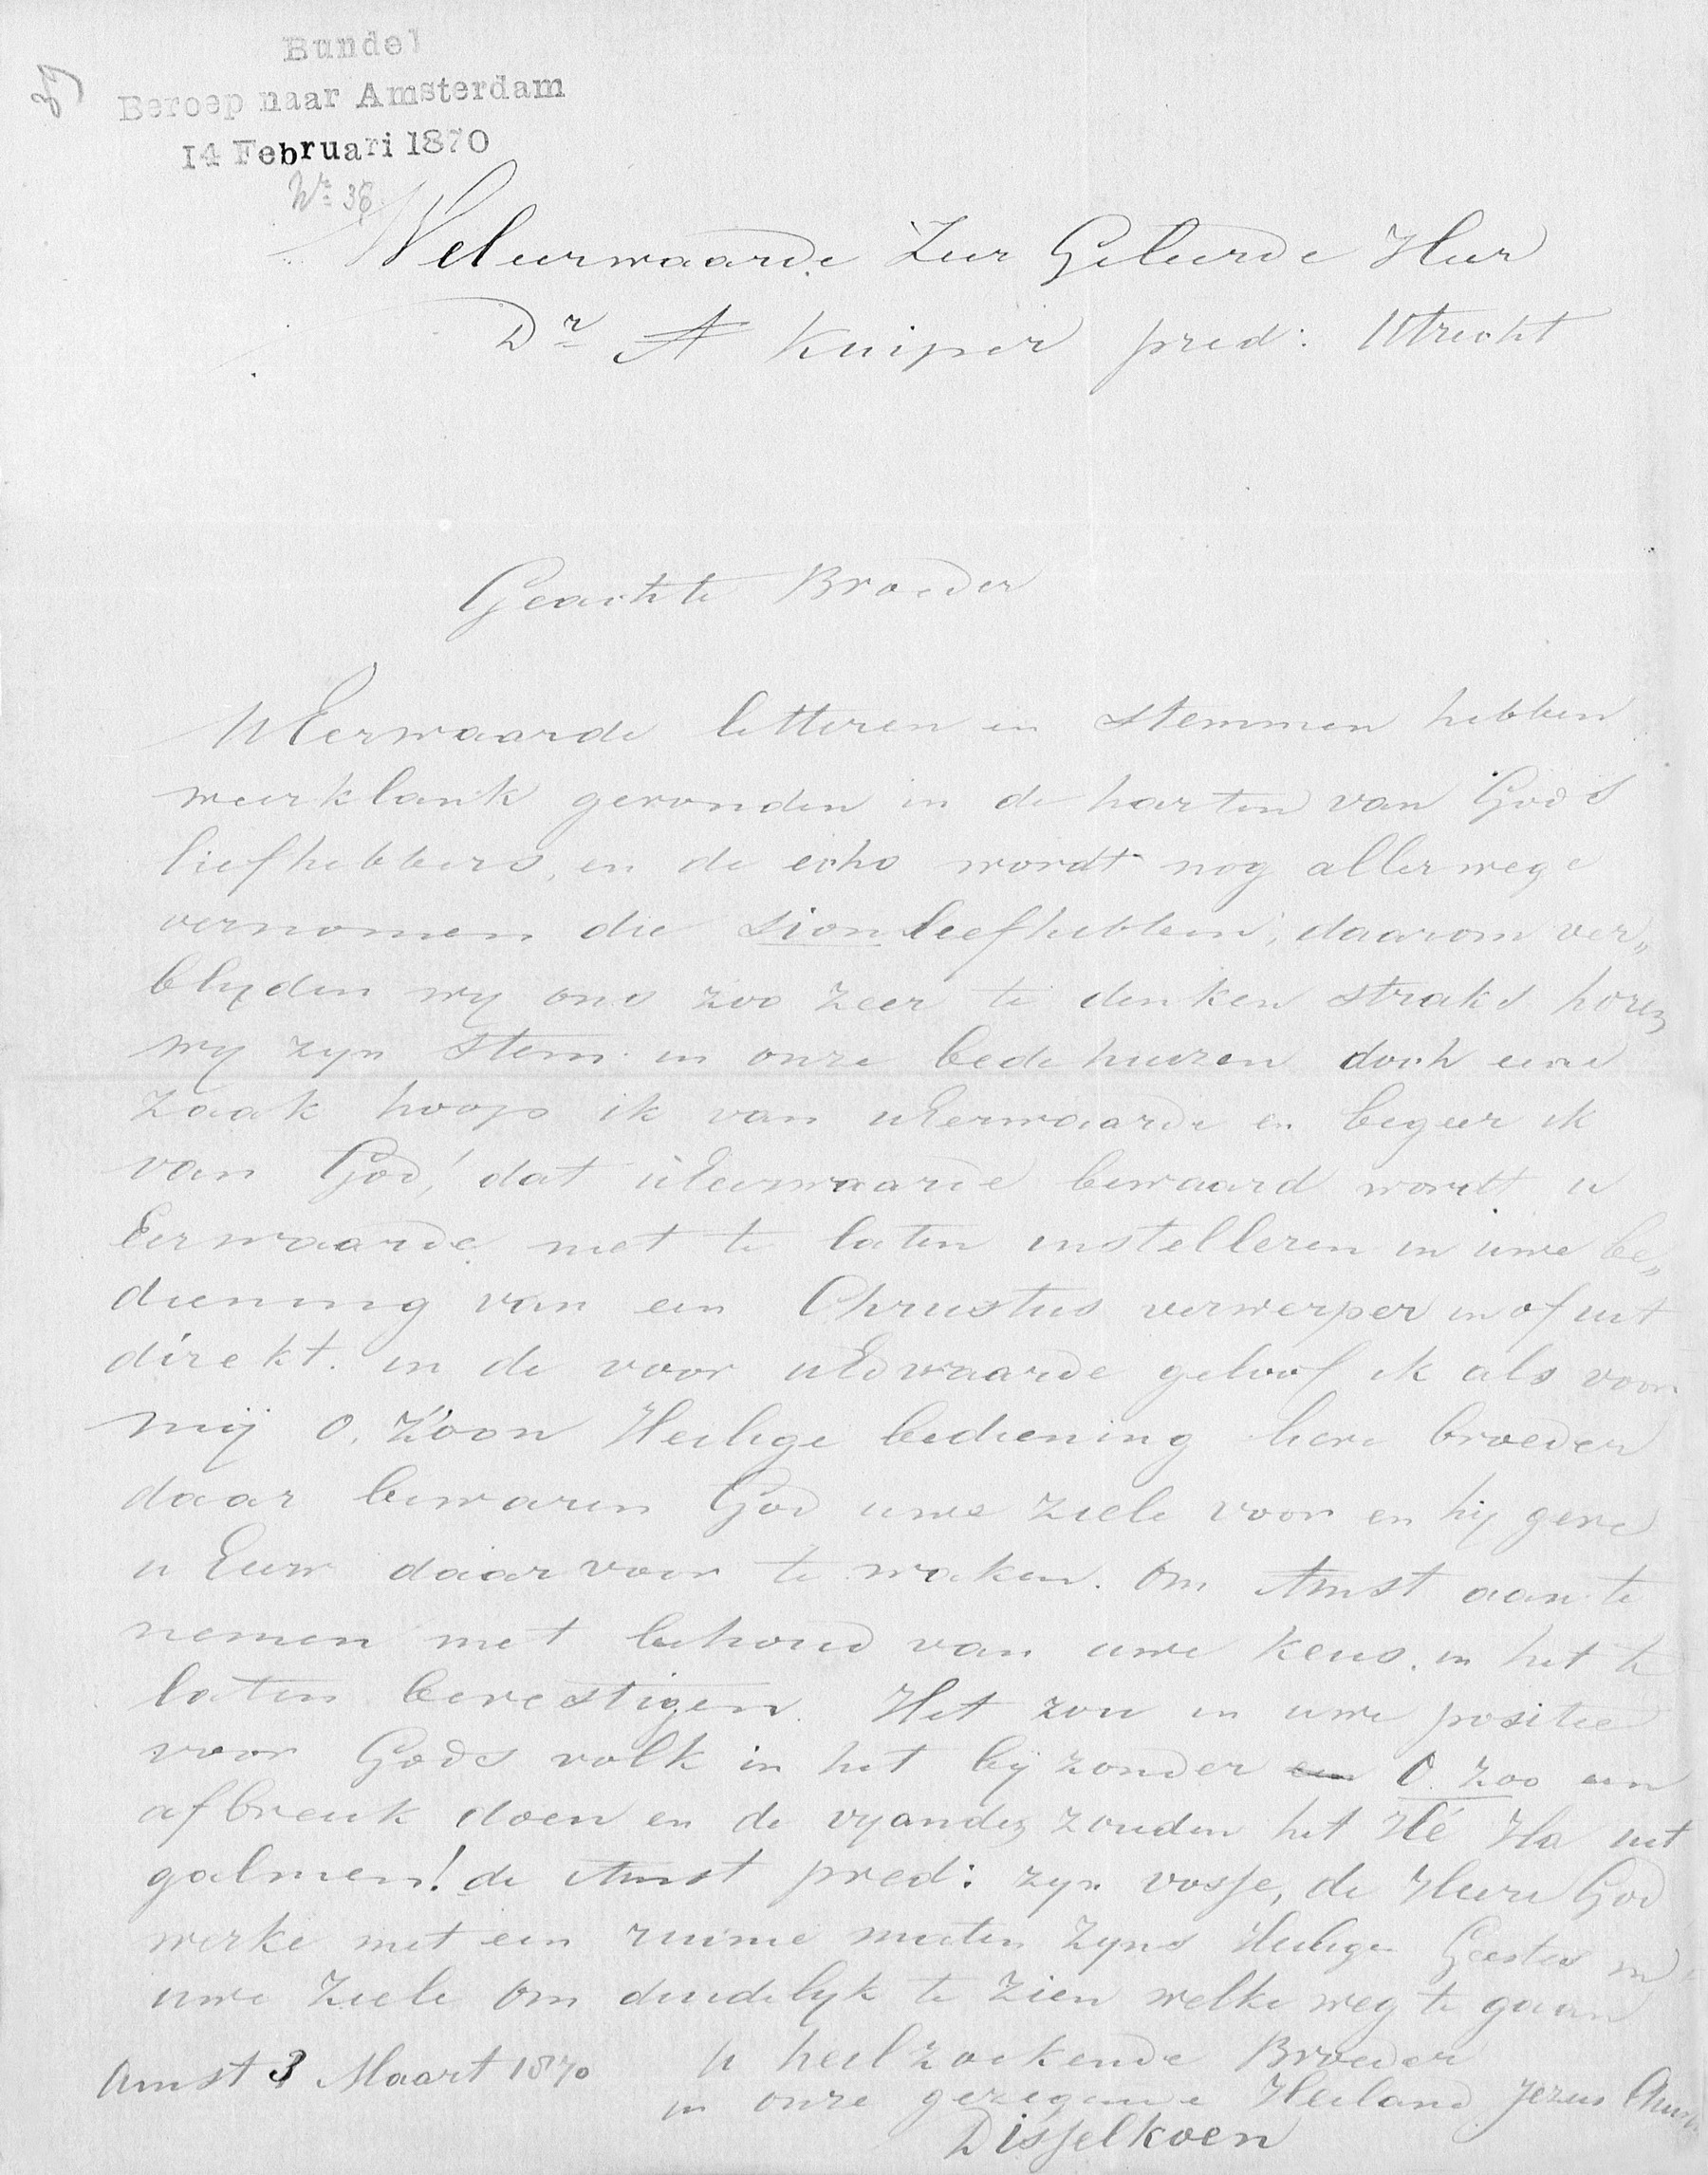 Bundel
Beroep naar Amsterdam
14 Februari 1870
Nr: 36
Weleerwaarde Zeer Geleerde Heer
Dr A Kuiper pred: Utrecht
Geachte Broeder
U Eerwaarde letteren en stemmen hebben
weerklank gevonden in de harten van Gods
liefhebbers, en de echo wordt nog allerwege
vernomen die Sion leefhebben, daarom ver„
blyden wy ons zoo zeer te denken straks horen
wy zyn stem in onze bedehuizen doch eene
zaak hoop ik van uEerwaarde en begeer ik
van God! dat uEerwaarde bewaard wordt u
Eerwaarde niet te laten instelleren in uwe be„
diening van een Christus verwerper in of uit
direkt. in de voor uEdwaarde geloof ik als voor
mij O, Zóon Heilige bediening lieve broeder
daar beware God uwe ziele voor en hij geve
u Eerw daar voor te waken. Om Amst aan te
nemen met behoud van uwe keus. in het te
laten bevestigen. Het zou in uwe positie
voor Gods volk in het byzonder een O. zoo een
afbreuk doen en de vyanden zouden het Hé Ha uit
galmen! de Amst pred: zyn vosje, de Heere God
werke met een ruime maten zyns Heilige Geestes in
uwe ziele om duidelyk te zien welke weg te gaan
Amst 3 Maart 1870
U heilzoekende Broeder
in onze gezegende Heiland Jezus
Disselkoen